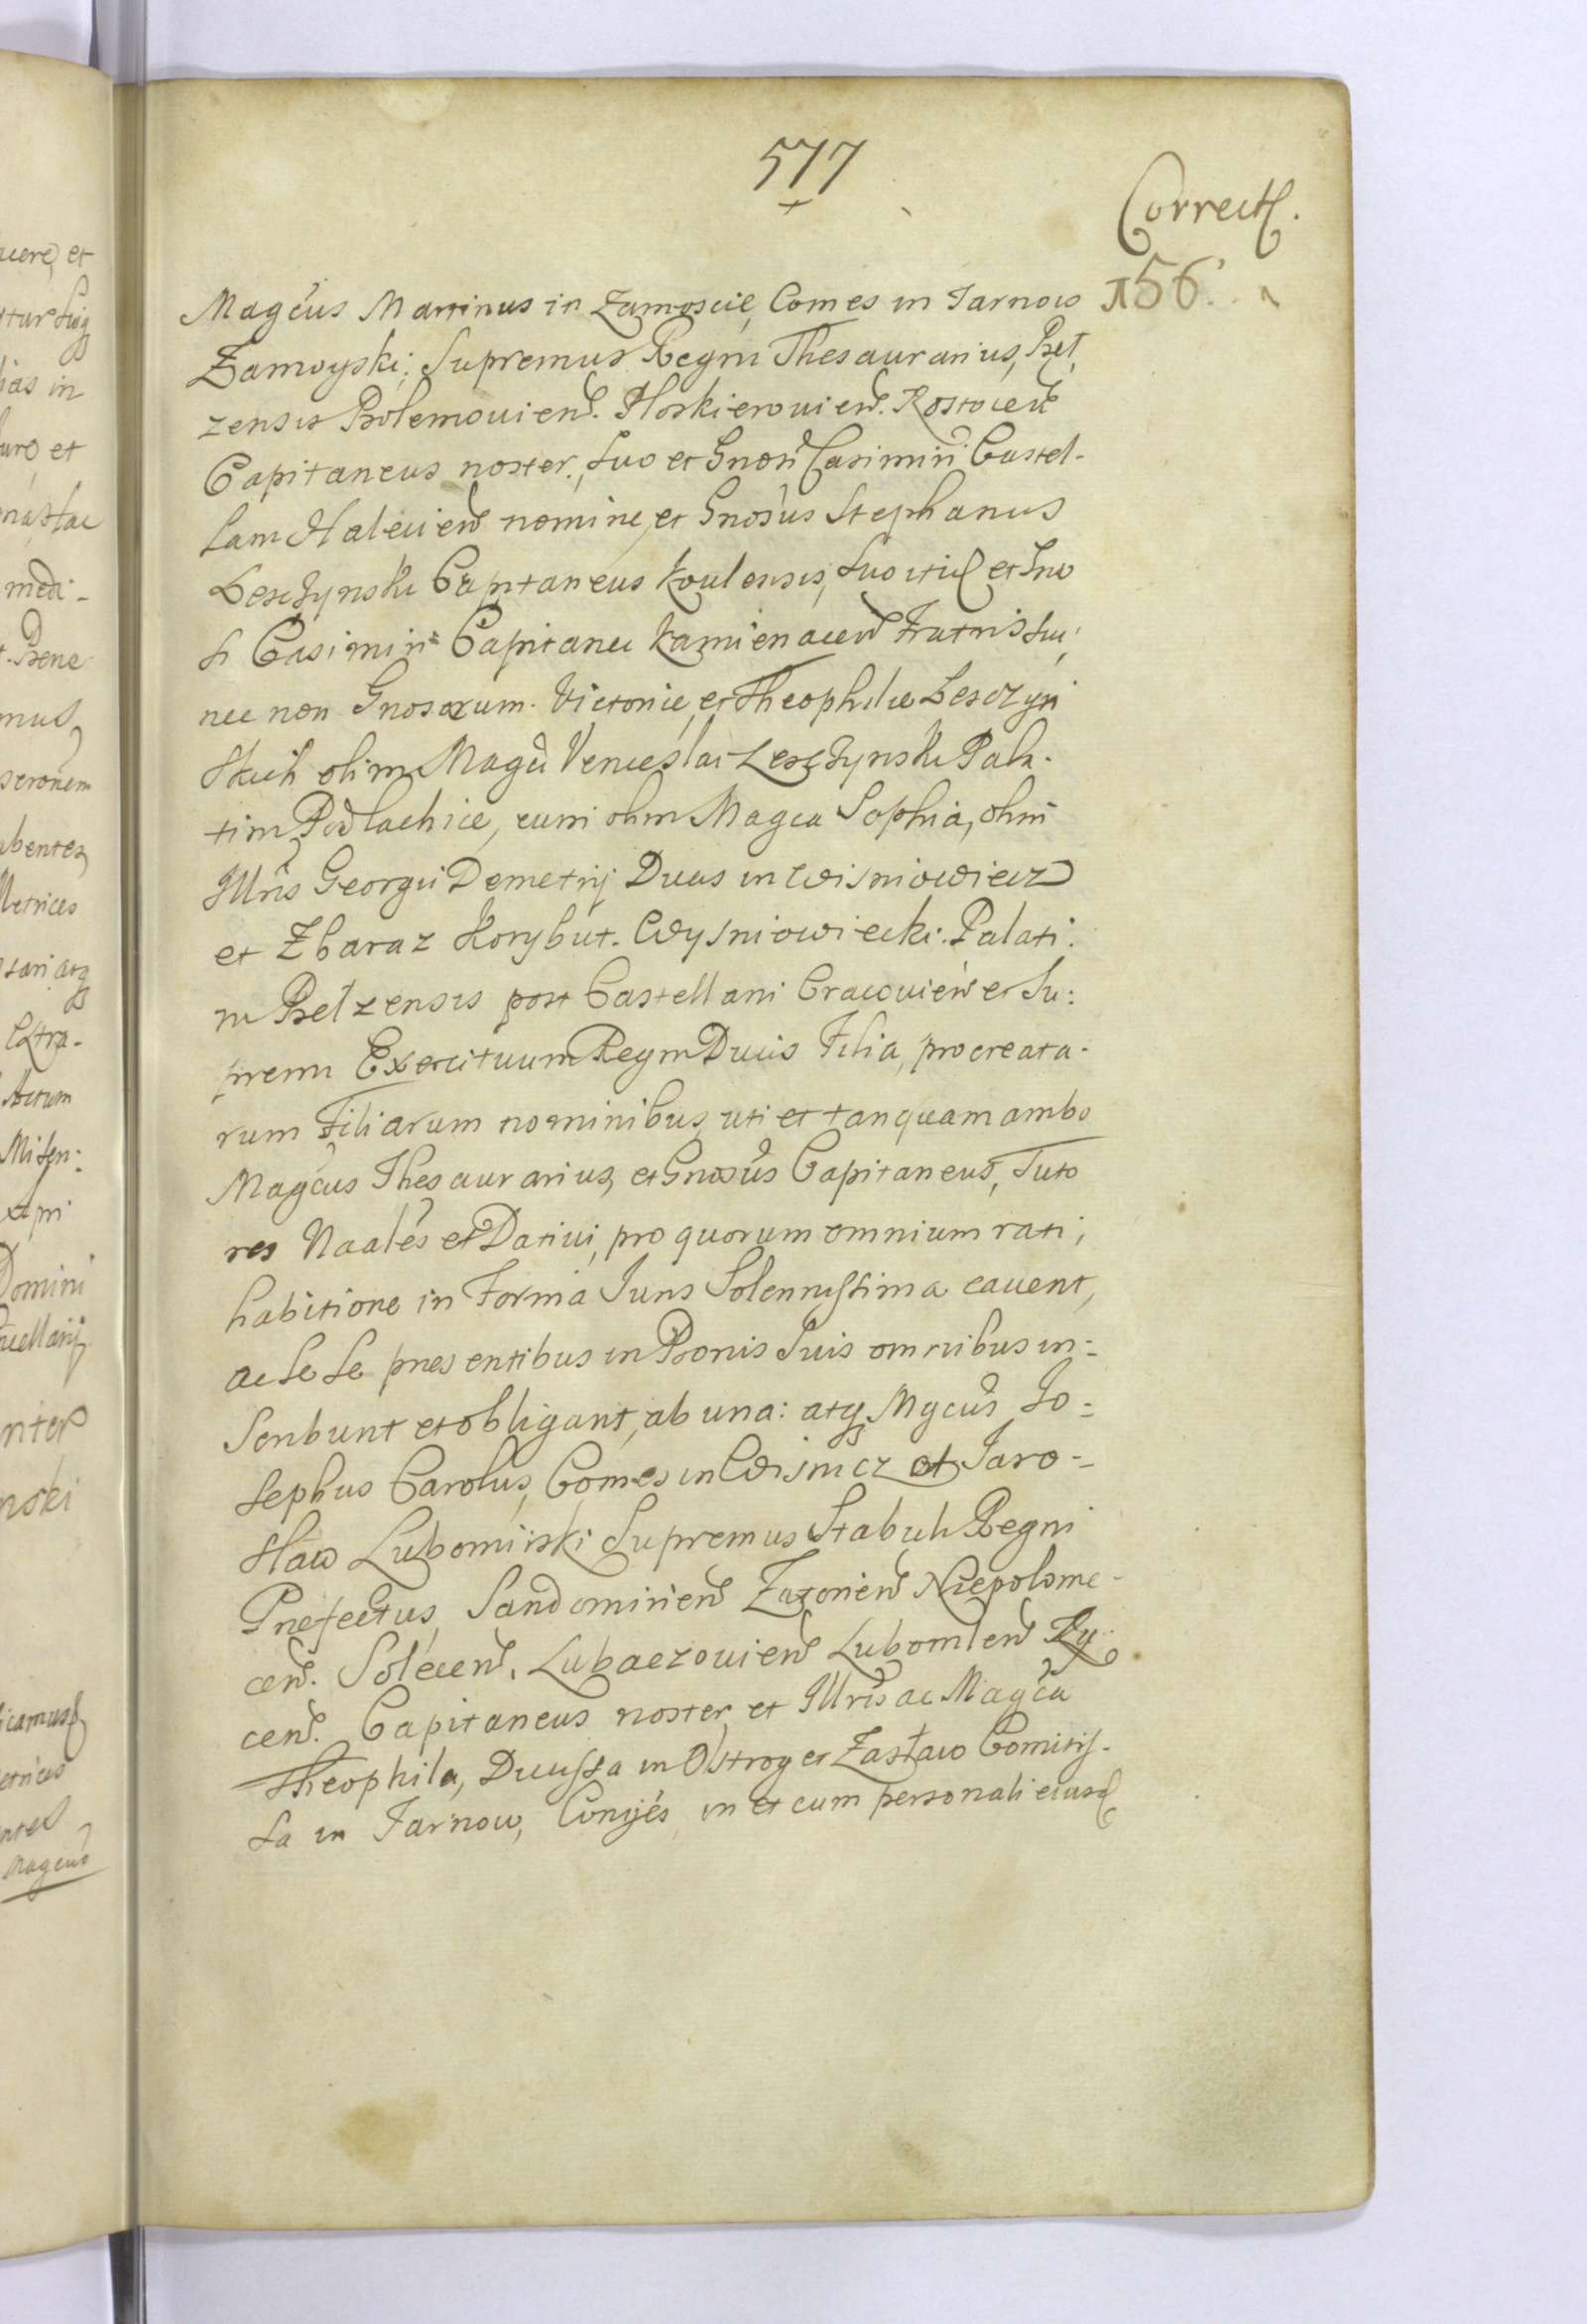 577
Correct.
156.
Magcus Martinus in Zamoscie, Comes in Tarnow
Zamoyski, Supremus Regni Thesaurarius, Bel,
zensis Bolemouiens. Ploskierouiens. Rostocens
Capitaneus noster, suo et Gnosi Casimiri Castel-
lani Haliciens nomine, et Gnosus Stephanus
Lesczynski Capitaneus Koulensis, suo itid et Gno
si Casimiri Capitanei Kamienacens Fratris sui,
nec non Gnosarum Victoriæ, et Theophilæ Lesczyn
skich olim Magci Venceslai Lesczynski Pala-
tini Podlachiæ, cum olim Magca Sophia, olim
Illris Georgii Demetrij Ducis in Wisniowiecz
et Zbaraz Korybut Wysniowiecki Palati:
ni Belzensis post Castellani Cracouiens et Su:
premi Exercituum Regni Ducis Filia, procreata-
rum Filiarum nominibus, uti et tanquam ambo
Magcus Thesaurarius, et Gnosus Capitaneus, Tuto
res Naales et Datiui, pro quorum omnium rati,
habitione in Forma Iuris Solennissima cauent,
ac se se præsentibus in Bonis Suis omnibus in:
scribunt et obligant, ab una: atq Mgcus Jo:
sephus Carolus, Comes in Wisnicz et Jaro-
slaw Lubomirski Supremus Stabuli Regni
Præfectus, Sandomiriens Zatoriens Niepolome-
cens. Solecens, Lubaczouiens Lubomlens Ry
cens. Capitaneus noster, et Illris ac Magca
Theophila, Ducissa in Ostrog et Zaslaw Comitis-
sa in Tarnow, Conjes, in et cum personali eiusd